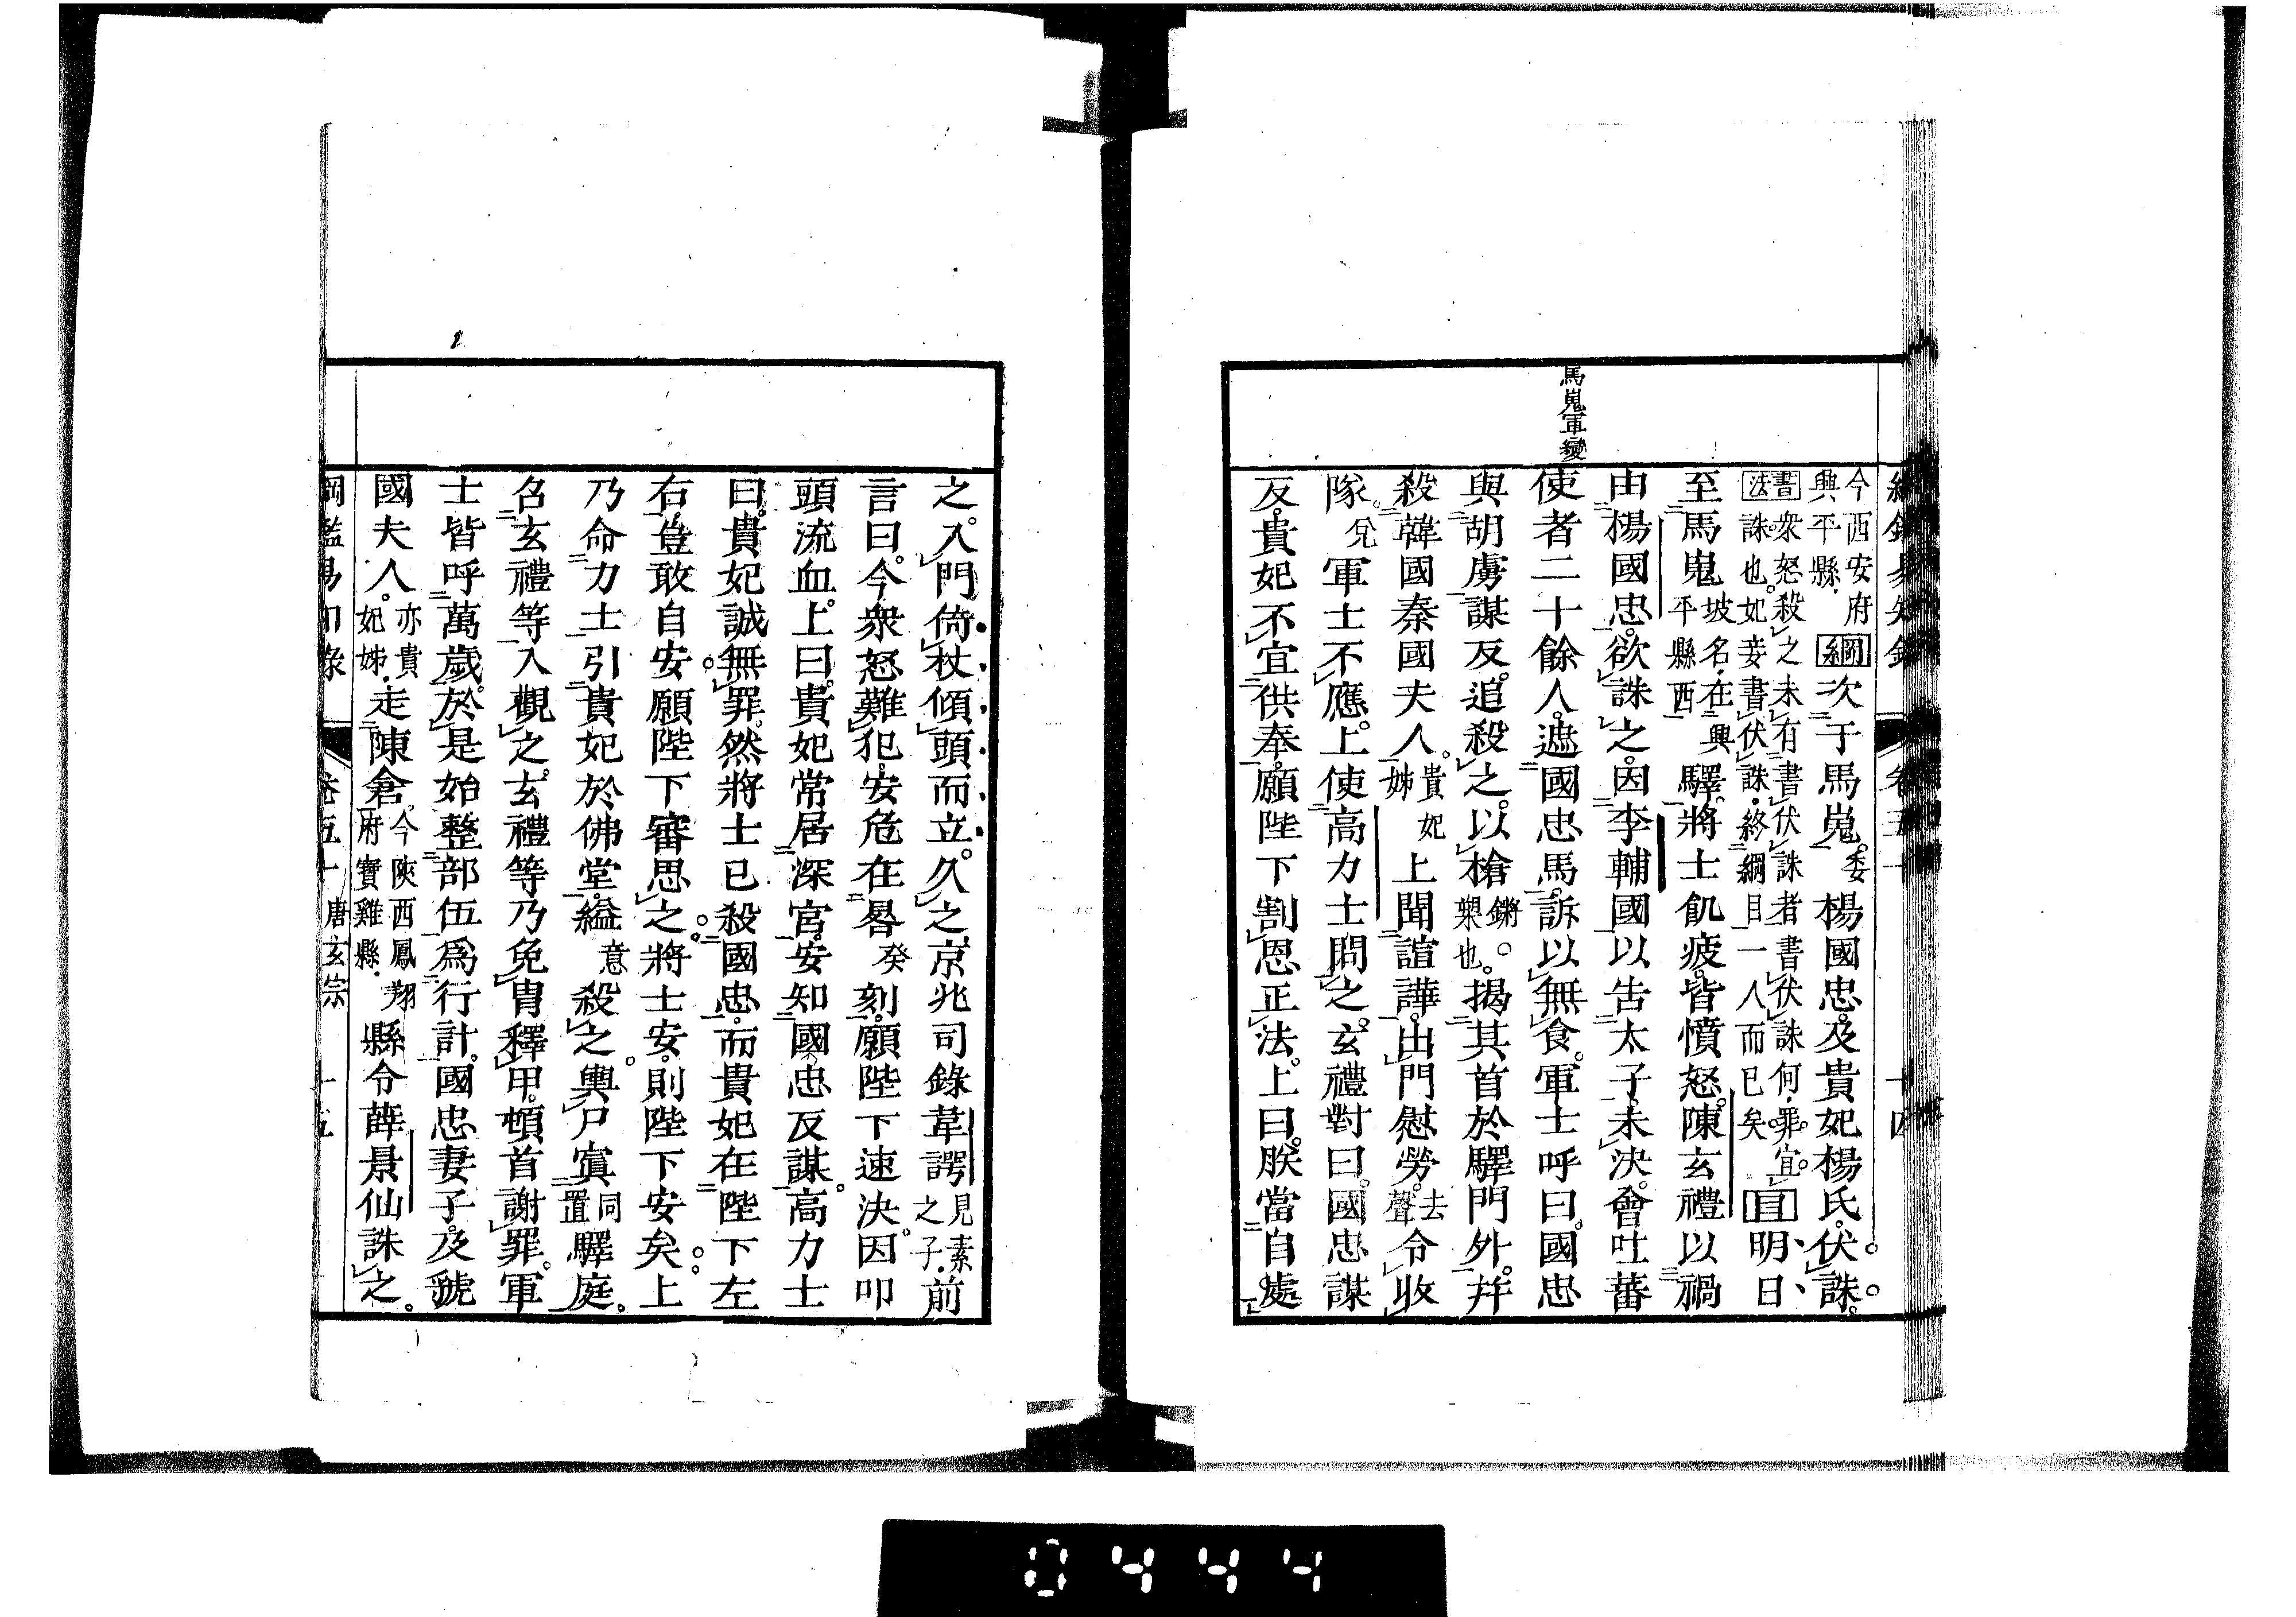 馬嵬軍變
今西安府興平縣．綱次于馬嵬。委楊國忠。及貴妃楊氏。伏誅。
書法衆怒殺之未有書伏誅者書伏誅何．罪宜誅也。妃妾書伏誅．終綱目一人而已矣。目明日、
至馬嵬坡名．在興平縣西驛。將士飢疲。皆憤怒。陳玄禮以禍
由楊國忠。欲誅之。因李輔國以告太子。未決。會吐蕃
使者二十餘人。遮國忠馬。訴以無食。軍士呼曰。國忠
與胡虜謀反。追殺之。以槍鏘。槊也。揭其首於驛門外。幷
殺韓國秦國夫人。貴妃姊上聞諠譁。出門慰勞。去聲令收
隊。兌軍士不應。上使高力士問之。玄禮對曰。國忠謀
反。貴妃不宜供奉。願陛下割恩正法。上曰。朕當自處
之。入門倚杖傾頭而立。久之京兆司錄韋諤見素之子．前
言曰。今衆怒難犯。安危在晷癸刻。願陛下速決。因叩
頭流血。上曰。貴妃常居深宮。安知國忠反謀。高力士
曰。貴妃誠無罪。然將士已殺國忠。而貴妃在陛下左
右。豈敢自安。願陛下審思之。將士安。則陛下安矣。上
乃命力士引貴妃於佛堂。縊意殺之。輿尸寘同置驛庭。
召玄禮等入觀之。玄禮等乃免冑釋甲。頓首謝罪。軍
士皆呼萬歲。於是始整部伍爲行計。國忠妻子。及虢
國夫人。亦貴妃姊．走陳倉。今陝西鳳翔府寶雞縣．縣令薛景仙誅之。
綱鑑易知錄　卷五十　唐玄宗　十五
0444